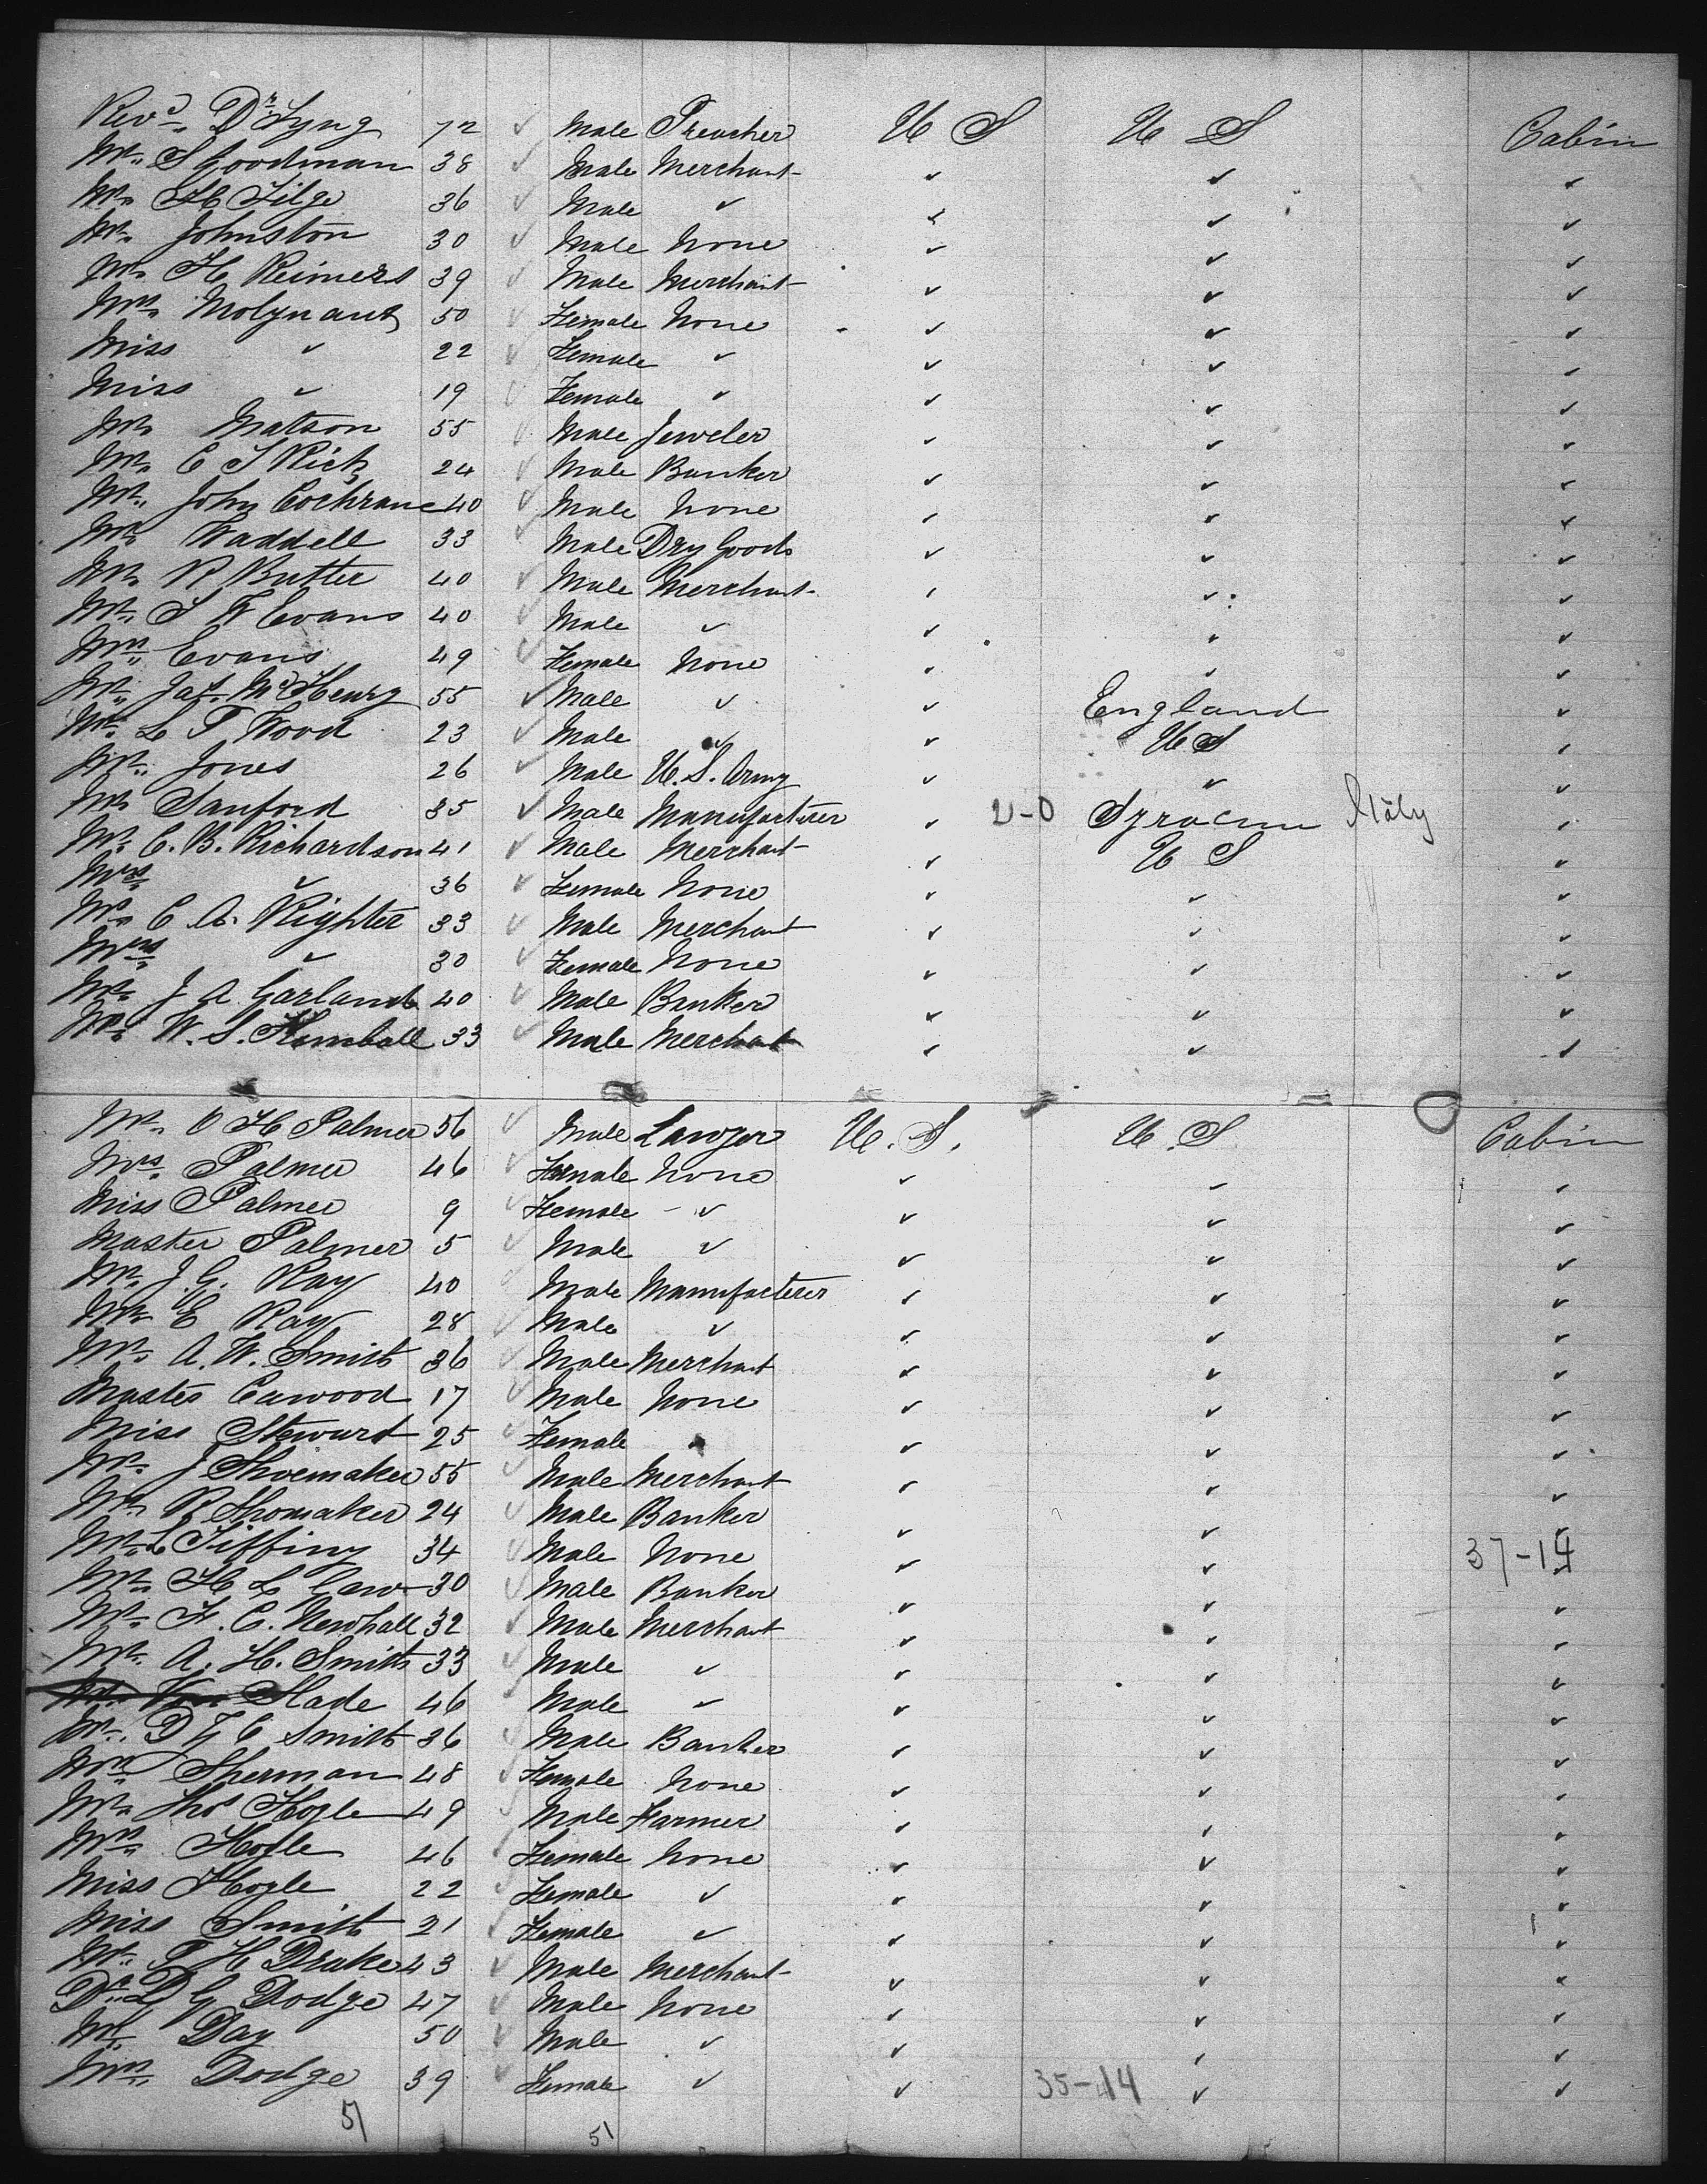 Revd. Dr Tyng 72 ✓ Male Preacher U S U S Cabin
Mr. S Goodman 38 ✓ Male Merchant ✓ ✓ ✓
Mr. H Tilge 36 ✓ Male ✓ ✓ ✓ ✓
Mr. Johnston 30 ✓ Male None ✓ ✓ ✓
Mr. H Reimers 39 ✓ Male Merchant ✓ ✓ ✓
Mrs. 50 ✓ Female None ✓ ✓ ✓
Miss ✓ 22 ✓ Female ✓ ✓ ✓ ✓
Miss ✓ 19 ✓ Female ✓ ✓ ✓ ✓
Mr. Matson 55 ✓ Male Jeweler ✓ ✓ ✓
Mr. C S Rich 24 ✓ Male Banker ✓ ✓ ✓
Mr. John Cochrane 40 ✓ Male None ✓ ✓ ✓
Mr. Waddell 33 ✓ Male Dry Goods ✓ ✓ ✓
Mr. R Butter 40 ✓ Male Merchant ✓ ✓ ✓
Mr. S W Evans 40 ✓ Male ✓ ✓ ✓ ✓
Mrs. Evans 49 ✓ Female None ✓ ✓ ✓
Mr. Jas. McHenry 55 ✓ Male ✓ ✓ England ✓
Mr. L T Wood 23 ✓ Male ✓ ✓ U S ✓
Mr. Jones 26 ✓ Male U.S. Army ✓ ✓ ✓
Mr. Sanford 35 ✓ Male Manufacterer ✓ U-O Italy ✓
Mr. C. B. Richardson 41 ✓ Male Merchant ✓ U S ✓
Mrs. ✓ 36 ✓ Female None ✓ ✓ ✓
Mr. C A. Righter 33 ✓ Male Merchant ✓ ✓ ✓
Mrs. ✓ 30 ✓ Female None ✓ ✓ ✓
Mr. J A Garland 40 ✓ Male Banker ✓ ✓ ✓
Mr. W. S. Kimball 33 ✓ Male Merchant ✓ ✓ ✓
Mr. O H Palmer 56 ✓ Male Lawyer U. S. U. S Cabin
Mrs. Palmer 46 ✓ Female None ✓ ✓ ✓
Miss Palmer 9 ✓ Female ✓ ✓ ✓ ✓
Master Palmer 5 ✓ Male ✓ ✓ ✓ ✓
Mr. J. G. Ray 40 ✓ Male Manufacterer ✓ ✓ ✓
Mr. E Ray 28 ✓ Male ✓ ✓ ✓ ✓
Mr. A. W. Smith 36 ✓ Male Merchant ✓ ✓ ✓
Master Cawood 17 ✓ Male None ✓ ✓ ✓
Miss Stewart 25 ✓ Female ✓ ✓ ✓ ✓
Mr. J Shoemaker 55 ✓ Male Merchant ✓ ✓ ✓
Mr. R Shomaker 24 ✓ Male Banker ✓ ✓ ✓
Mr. L Tiffiny 34 ✓ Male None ✓ ✓ 37-14 ✓
Mr. H L Gaw 30 ✓ Male Banker ✓ ✓ ✓
Mr. F. C. Newhall 32 ✓ Male Merchant ✓ ✓ ✓
Mr. A. H. Smith 33 ✓ Male ✓ ✓ ✓ ✓
Slade 46 ✓ Male ✓ ✓ ✓ ✓
Mr. D C Smith 36 ✓ Male Banker ✓ ✓ ✓
Mrs. Sherman 48 ✓ Female None ✓ ✓ ✓
Mr. Thos Hogle 49 ✓ Male Farmer ✓ ✓ ✓
Mrs. Hogle 46 ✓ Female None ✓ ✓ ✓
Miss Hogle 22 ✓ Female ✓ ✓ ✓ ✓
Miss Smith 21 ✓ Female ✓ ✓ ✓ ✓
Mr. P H Drake 43 ✓ Male Merchant ✓ ✓ ✓
Dr. D G Dodge 47 ✓ Male None ✓ ✓ ✓
Mr. Day 50 ✓ Male ✓ ✓ ✓ ✓
Mrs. Dodge 39 ✓ Female ✓ ✓ 35-14 ✓ ✓
51 51